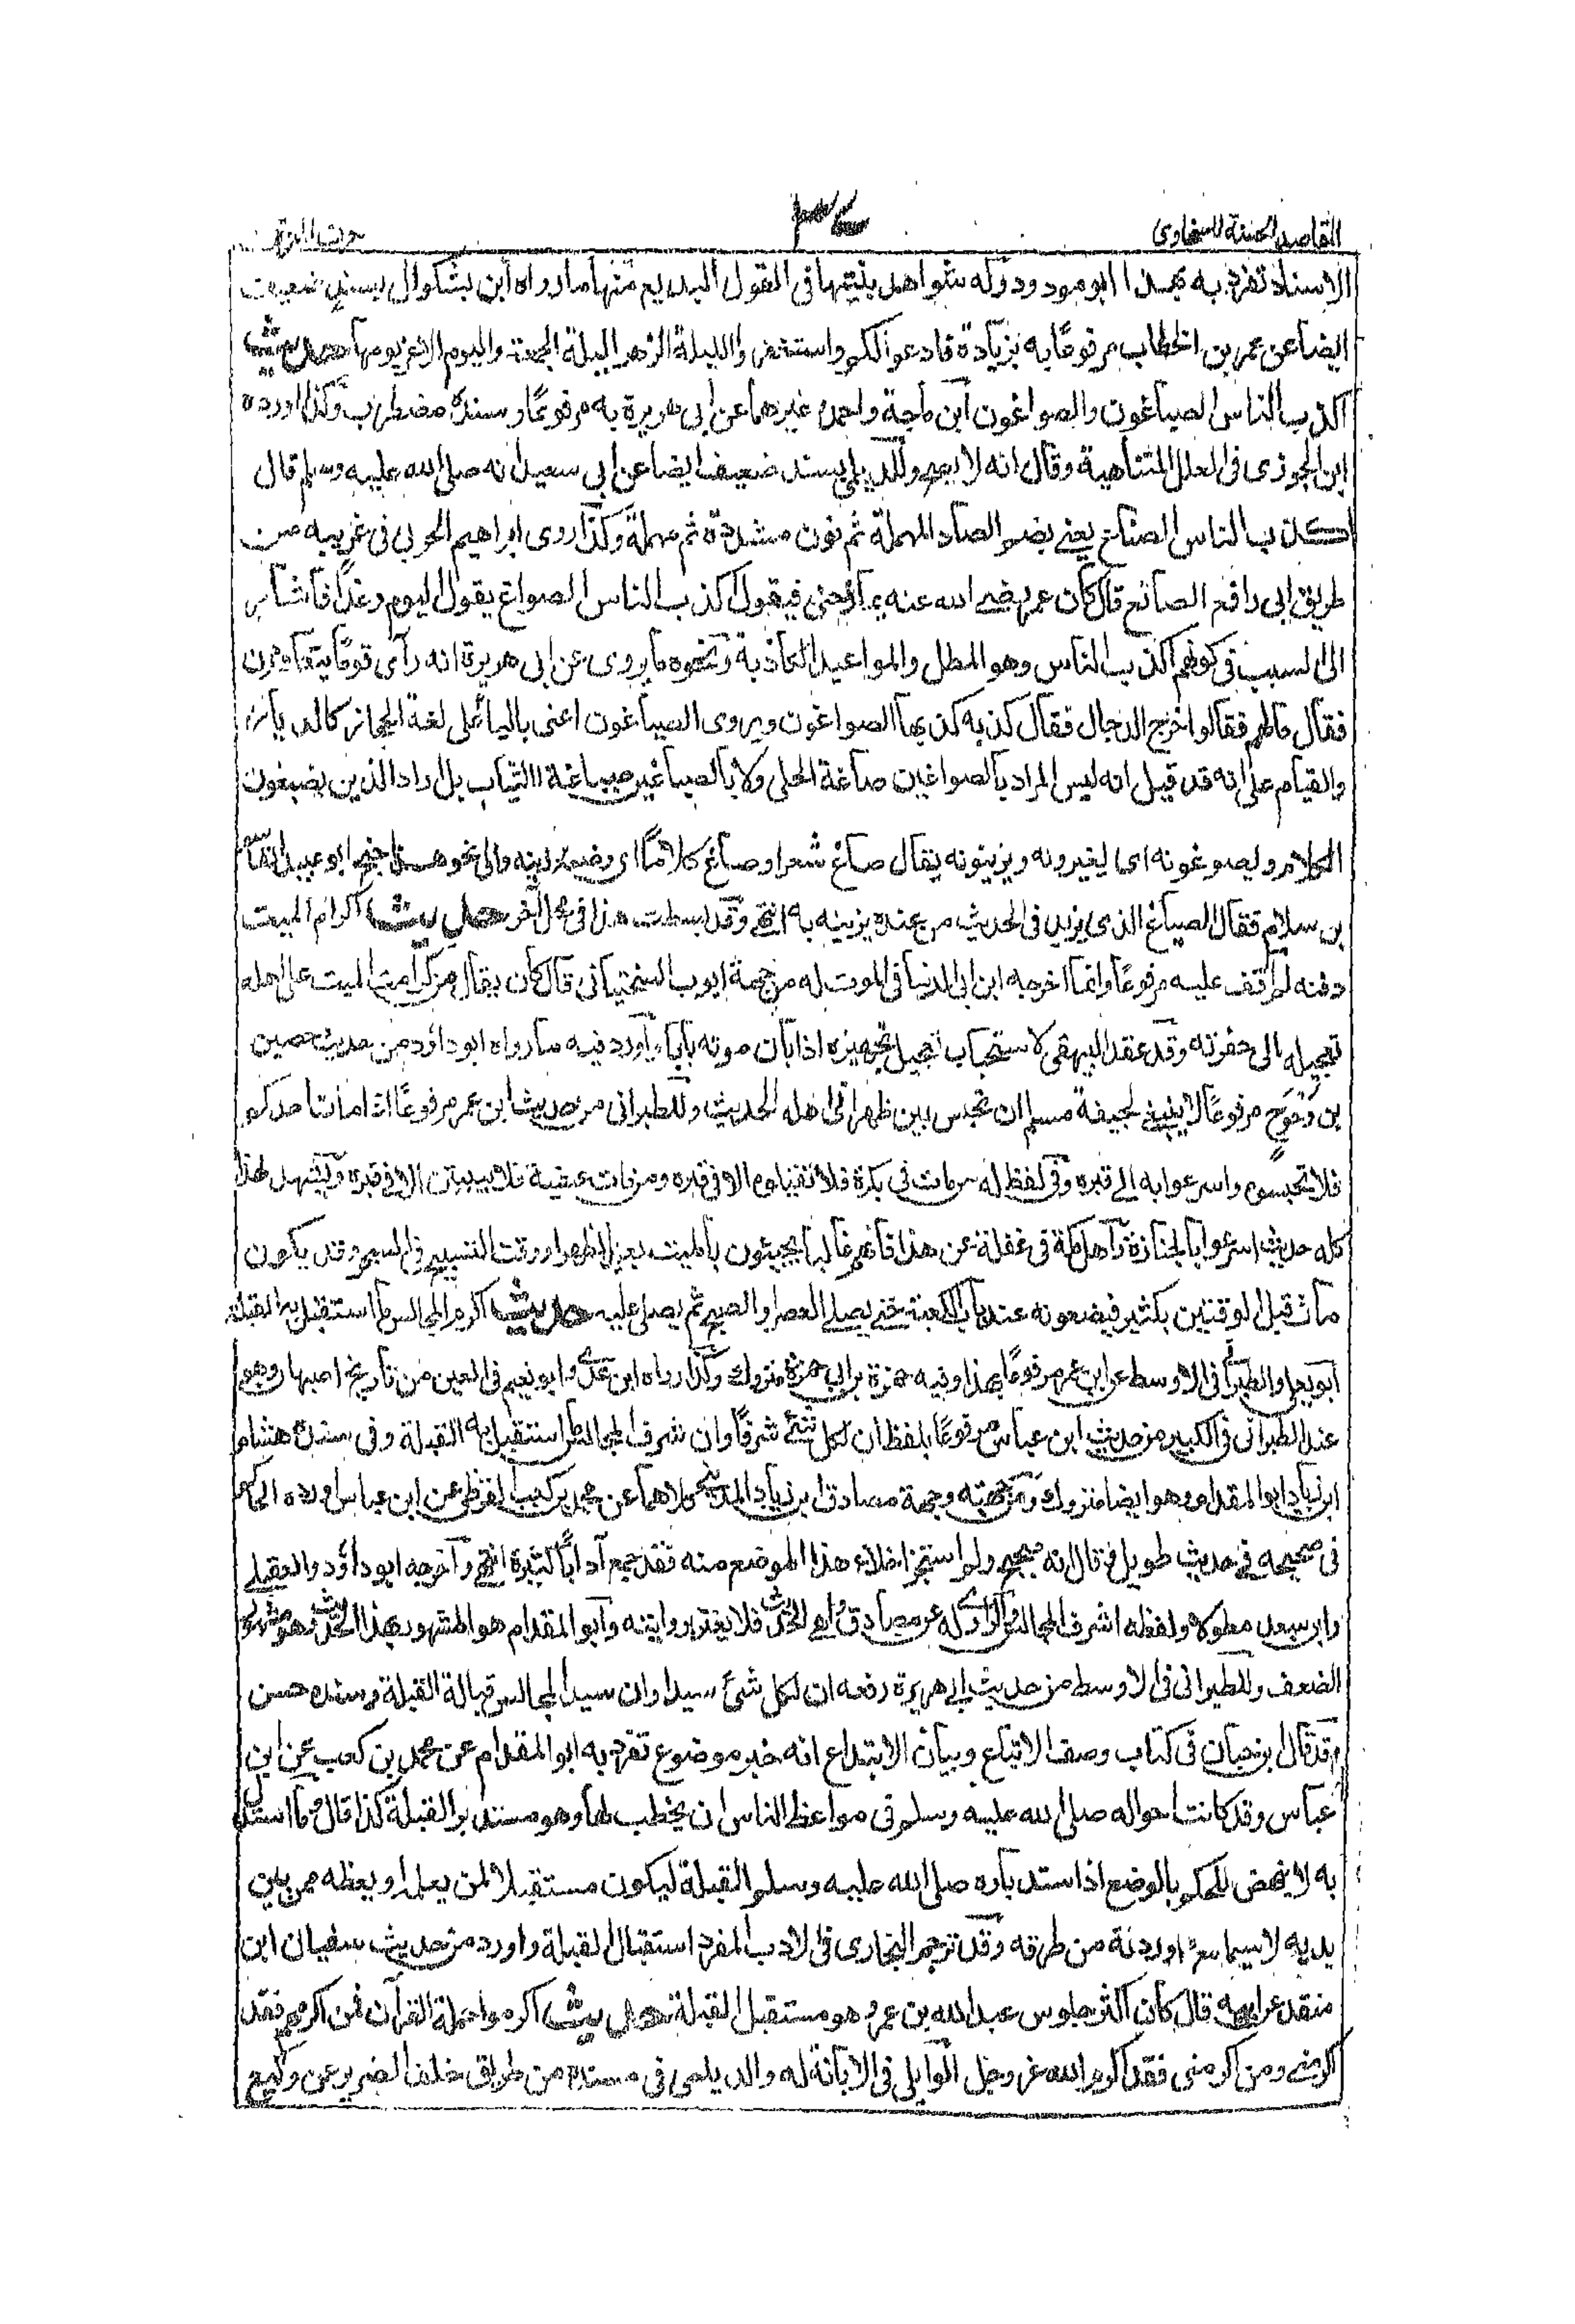 المقاصد الحسنة للسخاوى
٣٤
حرف الهمزة
الاسناد تفرد به هكذا ابو مودود وله شواهد بينتها فى القول البديع منها ما رواه ابن بشكوال بسند ضعيف
ايضا عن عمر بن الخطاب مرفوعًا به بزيادة فادعو لكم واستغفر والليلة الزهر اليلة الجمعة واليوم الاغر يومها حديث
اكذب الناس الصباغون والصواغون ابن ماجة واحمد وغيرهما عن ابى هريرة به مرفوعًا وسنده مضطرب وكذا اورده
ابن الجوزى فى العلل المتناهية وقال انه لا يصح وللديلمى بسند ضعيف ايضا عن ابى سعيد انه صلى الله عليه وسلم قال
اكذب الناس الصناع يعنى بضم الصاد المهملة ثم نون مشددة ثم مهملة وكذا روى ابراهيم الحربى فى غريبه من
طريق ابى رافع الصائغ قال كان عمر رضى الله عنه يمازحنى فيقول اكذب الناس الصواغ يقول اليوم وغدًا فاشار
الى السبب فى كونهم اكذب الناس وهو المطل والمواعيد الكاذبة ونحوه ما يروى عن ابى هريرة انه رآى قومًا يتعادون
فقال ما لهم فقالوا خرج الدجال فقال كذبه كذبها الصواغون ويروى الصياغون اعنى بالياء على لغة الحجاز كالديار
والقيام على انه قد قيل انه ليس المراد بالصواغين صاغة الحلى ولا بالصباغين صباغة الثياب بل اراد الذين يصبغون
الكلام ويصوغونه اى يغيرونه ويزينونه يقال صاغ شعرا وصاغ كلامًا اى وضعه وزينه والى نحو هذا جنح ابو عبيد القاسم
بن سلام فقال الصباغ الذى يزيد فى الحديث من عنده يزينه به انتهى وقد بسطت هذا فى محل آخر حديث اكرام الميت
دفنه لم اقف عليه مرفوعًا وانما اخرجه ابن ابى الدنيا فى الموت له من جهة ايوب السختيانى قال كان يقال من كرامة الميت على اهله
تعجيله الى حفرته وقد عقد البيهقى لاستحباب تعجيل تجهيزه اذا بان موته بابا واورد فيه ما رواه ابو داؤد من حديث حصين
بن وحوح مرفوعًا لا ينبغى لجيفة مسلم ان تحبس بين ظهرانى اهله الحديث وللطبرانى من حديث ابن عمر مرفوعًا اذا مات احدكم
فلا تحبسوه واسرعوا به الى قبره وفى لفظ له من مات فى بكرة فلا تقيلوه الا فى قبره ومن مات عشية فلا يبيتن الا فى قبره ويشهد لهذا
كله حديث اسرعوا بالجنازة واهل مكة فى غفلة عن هذا فانهم غالبا يجيئون بالميت بعيد الظهر او وقت التسبيح فى السحر وقد يكون
مات قبل الوقتين بكثير فيضعونه عند باب الكعبة حتى يصلى العصر او الصبح ثم يصلى عليه حديث اكرم المجالس ما استقبل به القبلة
ابو يعلى والطبرانى فى الاوسط عن ابن عمر مرفوعًا بهذا وفيه حمزة بن ابى حمزة متروك وكذا رواه ابن عدى وابو نعيم فى العين من تاريخ اصبهان وهو
عند الطبرانى فى الكبير من حديث ابن عباس مرفوعًا بلفظ ان لكل شئ شرفًا وان شرف المجالس ما استقبل به القبلة وفى سنده هشام
ابن زياد ابو المقدام وهو ايضا متروك ومن جهته وجهة مصادف ابن زياد المدينى كلاهما عن محمد بن كعب القرظى عن ابن عباس اورده الحاكم
فى صحيحه فى حديث طويل وقال انه صحيح ولم استجز اخلاء هذا الموضع منه فقد جمع آدابًا كثيرة انتهى واخرجه ابو داؤد والعقيلى
وابن سعد مطولا ولفظه اشرف المجالس والراوى له عن مصادف واهى الحديث فلا يغتر بروايته وابو المقدام هو المشهور بهذا الحديث وهو مشهور
الضعف وللطبرانى فى الاوسط من حديث ابى هريرة رفعه ان لكل شئ سيدا وان سيد المجالس قبالة القبلة وسنده حسن
وقد قال ابن حبان فى كتاب وصف الاتباع وبيان الابتداع انه خبر موضوع تفرد به ابو المقدام عن محمد بن كعب عن ابن
عباس وقد كانت احواله صلى الله عليه وسلم فى مواعظ الناس ان يخطب لها وهو مستدبر القبلة كذا قال وما استدل
به لا ينهض للحكم بالوضع اذ استدباره صلى الله عليه وسلم القبلة ليكون مستقبلا لمن يعلمه او يعظه ممن بين
يديه لا سيما مع ما اوردنة من طرقه وقد ترجم البخارى فى الادب المفرد استقبال القبلة واورد من حديث سفيان ابن
منقذ عن ابيه قال كان اكثر جلوس عبد الله بن عمر وهو مستقبل القبلة حديث اكرموا حملة القرآن فمن اكرمهم فقد
اكرمنى ومن اكرمنى فقد اكرم الله عز وجل الوايلى فى الابانة له والديلمى فى مسنده من طريق خلف الضرير عن وكيع